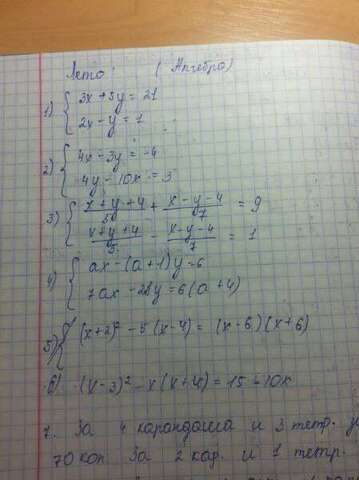 Лето: (Алгебра)
1) { 3x + 3y = 21
2x - y = 1
2) { 4x - 3y = -4
4y - 10x = 3
3) { (x + y + 4)/5 + (x - y - 4)/7 = 9
(x + y + 4)/5 - (x - y - 4)/7 = 1
4) { ax - (a + 1)y = 6
7ax - 28y = 6(a + 4)
5) { (x + 2)² - 5(x - 4) = (x - 6)(x + 6)
6) (x - 3)² - x(x + 4) = 15 - 10x
7. За 4 карандаша и 3 тетр. у
70 коп. За 2 кар. и 1 тетр.